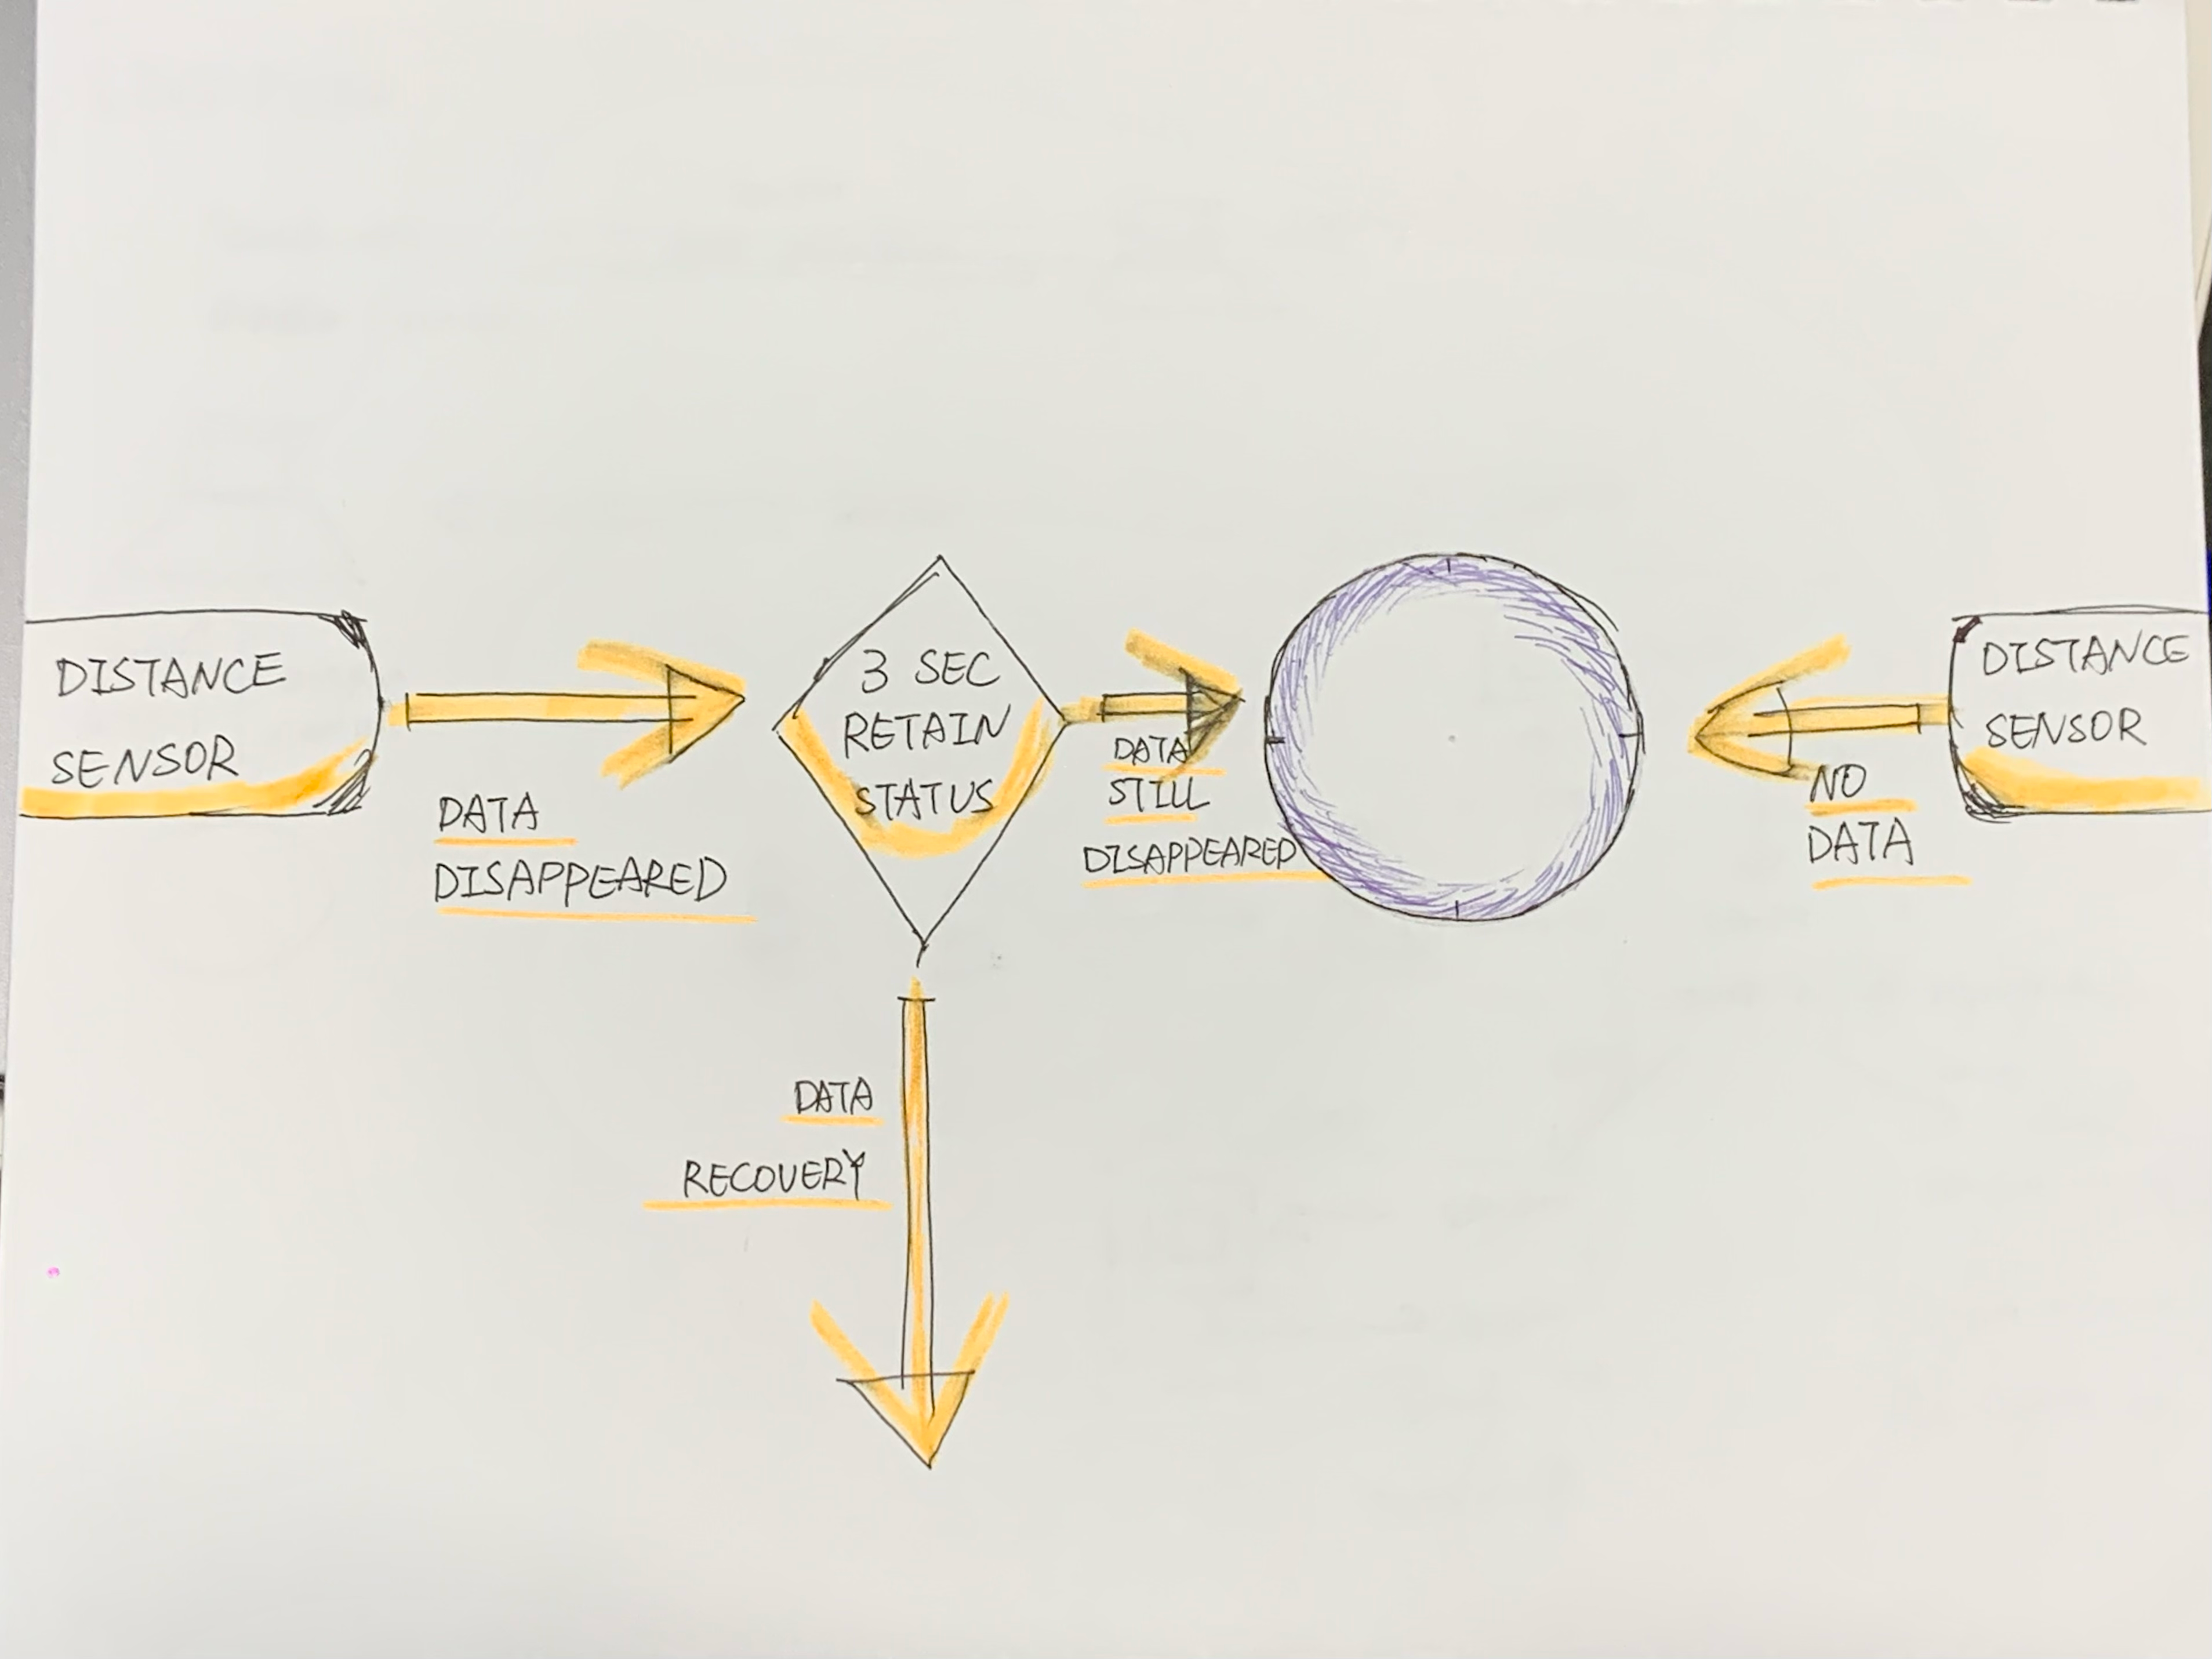 DISTANCE
SENSOR
DATA
DISAPPEARED
3 SEC
RETAIN
STATUS
DATA
STILL
DISAPPEARED
NO
DATA
DISTANCE
SENSOR
DATA
RECOVERY